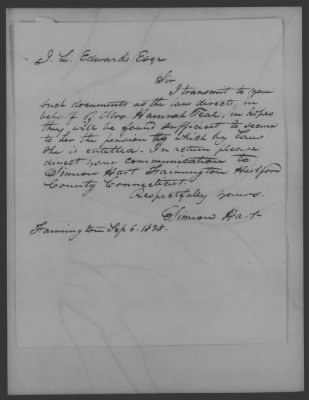 J. L. Edwards Esqr
Sir
I transmit to you
such documents as the law directs, in
behalf of Mrs. Hannah Peac, in hopes
they will be found sufficient to secure
to her the pension to which by law
she is entitled. In return please
direct your communication to
Simeon Hart Farmington Hartford
County Connecticut.
Respectfully yours.
Simeon Hart
Farmington Sep 6. 1838.